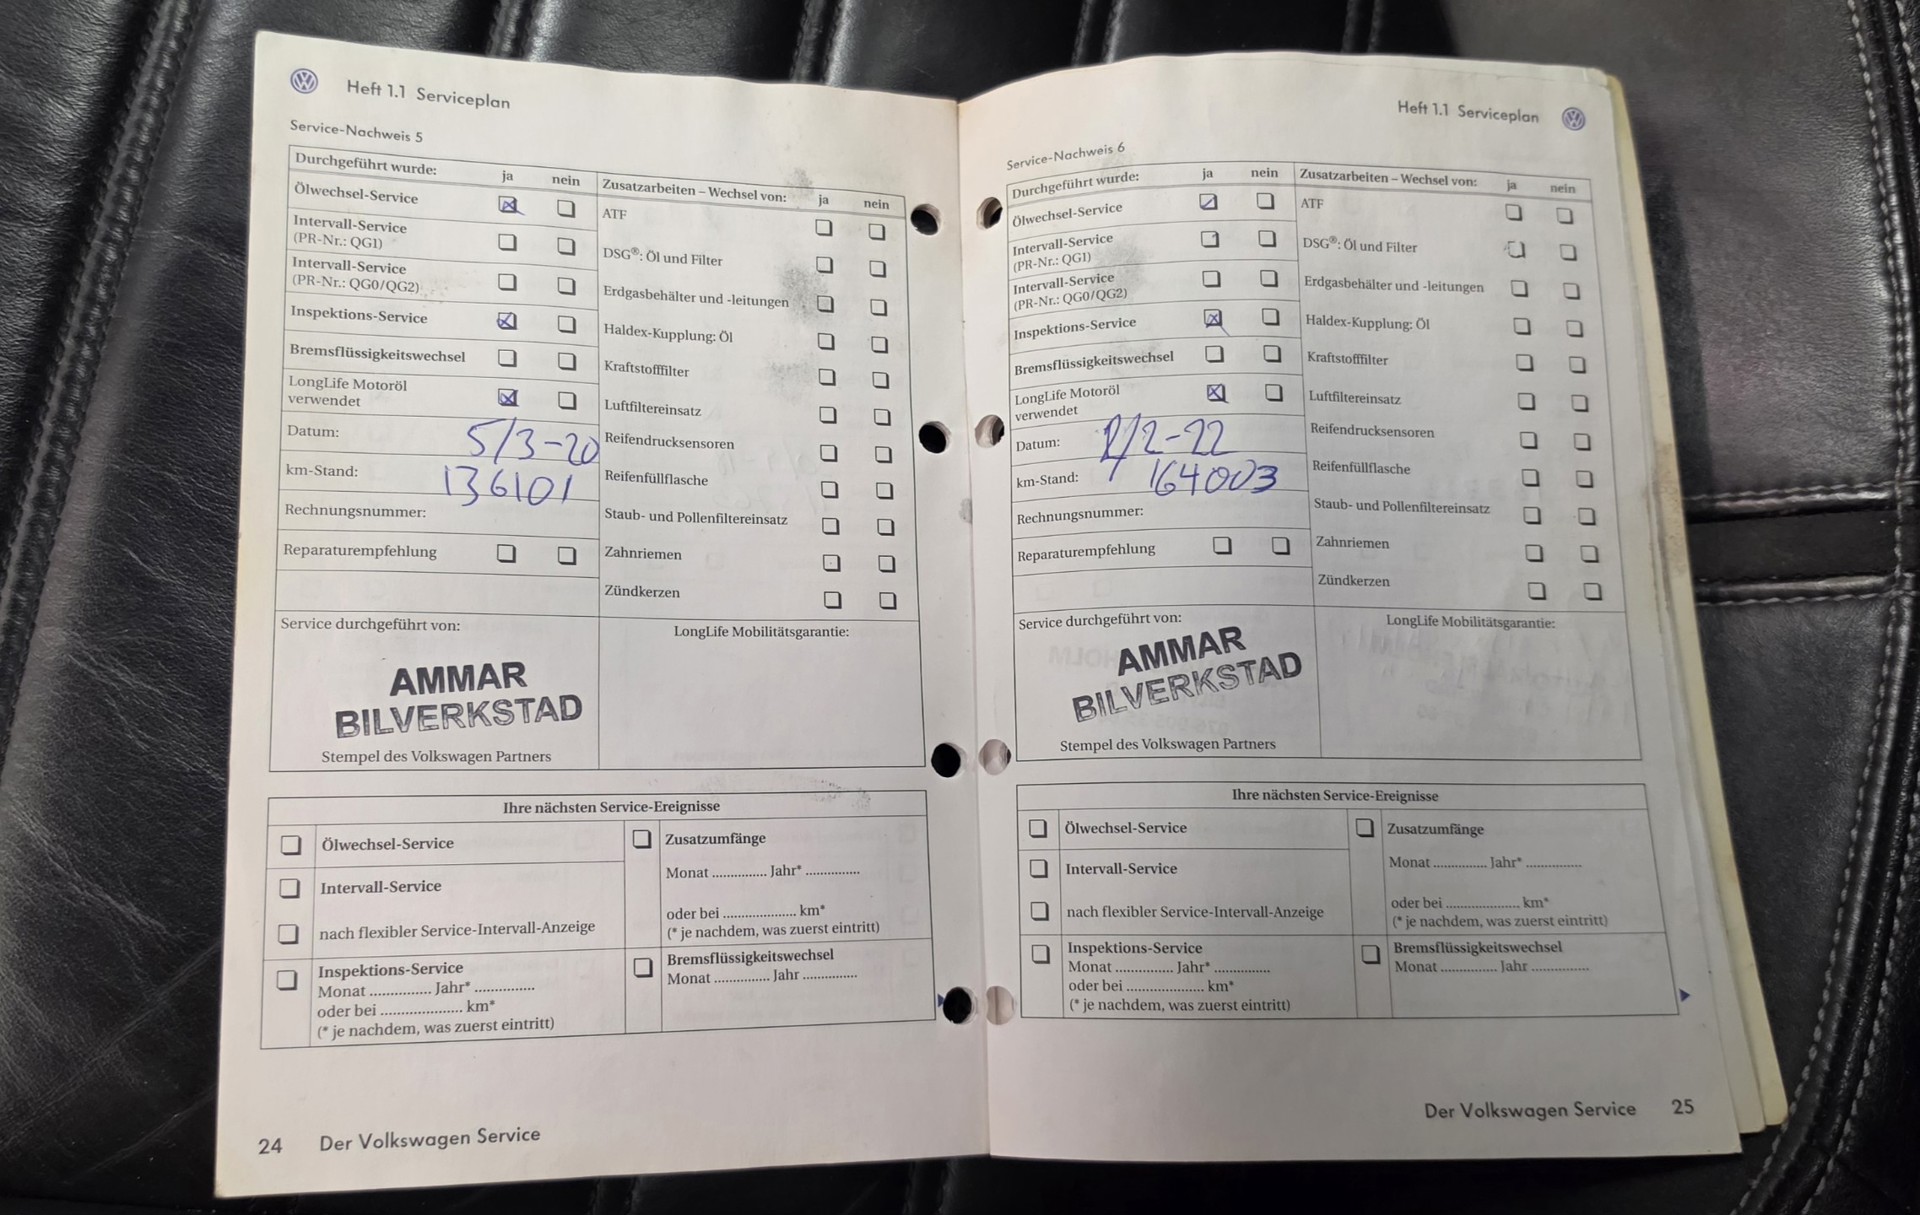 Heft 1.1 Serviceplan
Service-Nachweis 5
Durchgeführt wurde: ja nein
Ölwechsel-Service
Intervall-Service
(PR-Nr.: QG1)
Intervall-Service
(PR-Nr.: QG0/QG2)
Inspektions-Service
Bremsflüssigkeitswechsel
LongLife Motoröl
verwendet
Datum: 5/3-20
km-Stand: 136101
Rechnungsnummer:
Reparaturempfehlung
Zusatzarbeiten – Wechsel von: ja nein
ATF
DSG®: Öl und Filter
Erdgasbehälter und -leitungen
Haldex-Kupplung: Öl
Kraftstofffilter
Luftfiltereinsatz
Reifendrucksensoren
Reifenfüllflasche
Staub- und Pollenfiltereinsatz
Zahnriemen
Zündkerzen
Service durchgeführt von:
AMMAR
BILVERKSTAD
Stempel des Volkswagen Partners
LongLife Mobilitätsgarantie:
Ihre nächsten Service-Ereignisse
Ölwechsel-Service
Intervall-Service
nach flexibler Service-Intervall-Anzeige
Inspektions-Service
Monat ............... Jahr* ...............
oder bei .................... km*
(* je nachdem, was zuerst eintritt)
Zusatzumfänge
Monat .............. Jahr* ..............
oder bei .................... km*
(* je nachdem, was zuerst eintritt)
Bremsflüssigkeitswechsel
Monat .............. Jahr ..............
24 Der Volkswagen Service
Heft 1.1 Serviceplan
Service-Nachweis 6
Durchgeführt wurde: ja nein
Ölwechsel-Service
Intervall-Service
(PR-Nr.: QG1)
Intervall-Service
(PR-Nr.: QG0/QG2)
Inspektions-Service
Bremsflüssigkeitswechsel
LongLife Motoröl
verwendet
Datum: /2-22
km-Stand: 164003
Rechnungsnummer:
Reparaturempfehlung
Zusatzarbeiten – Wechsel von: ja nein
ATF
DSG®: Öl und Filter
Erdgasbehälter und -leitungen
Haldex-Kupplung: Öl
Kraftstofffilter
Luftfiltereinsatz
Reifendrucksensoren
Reifenfüllflasche
Staub- und Pollenfiltereinsatz
Zahnriemen
Zündkerzen
Service durchgeführt von:
AMMAR
BILVERKSTAD
Stempel des Volkswagen Partners
LongLife Mobilitätsgarantie:
Ihre nächsten Service-Ereignisse
Ölwechsel-Service
Intervall-Service
nach flexibler Service-Intervall-Anzeige
Inspektions-Service
Monat ............... Jahr* ..............
oder bei .................... km*
(* je nachdem, was zuerst eintritt)
Zusatzumfänge
Monat .............. Jahr* ..............
oder bei .................... km*
(* je nachdem, was zuerst eintritt)
Bremsflüssigkeitswechsel
Monat .............. Jahr ..............
Der Volkswagen Service 25